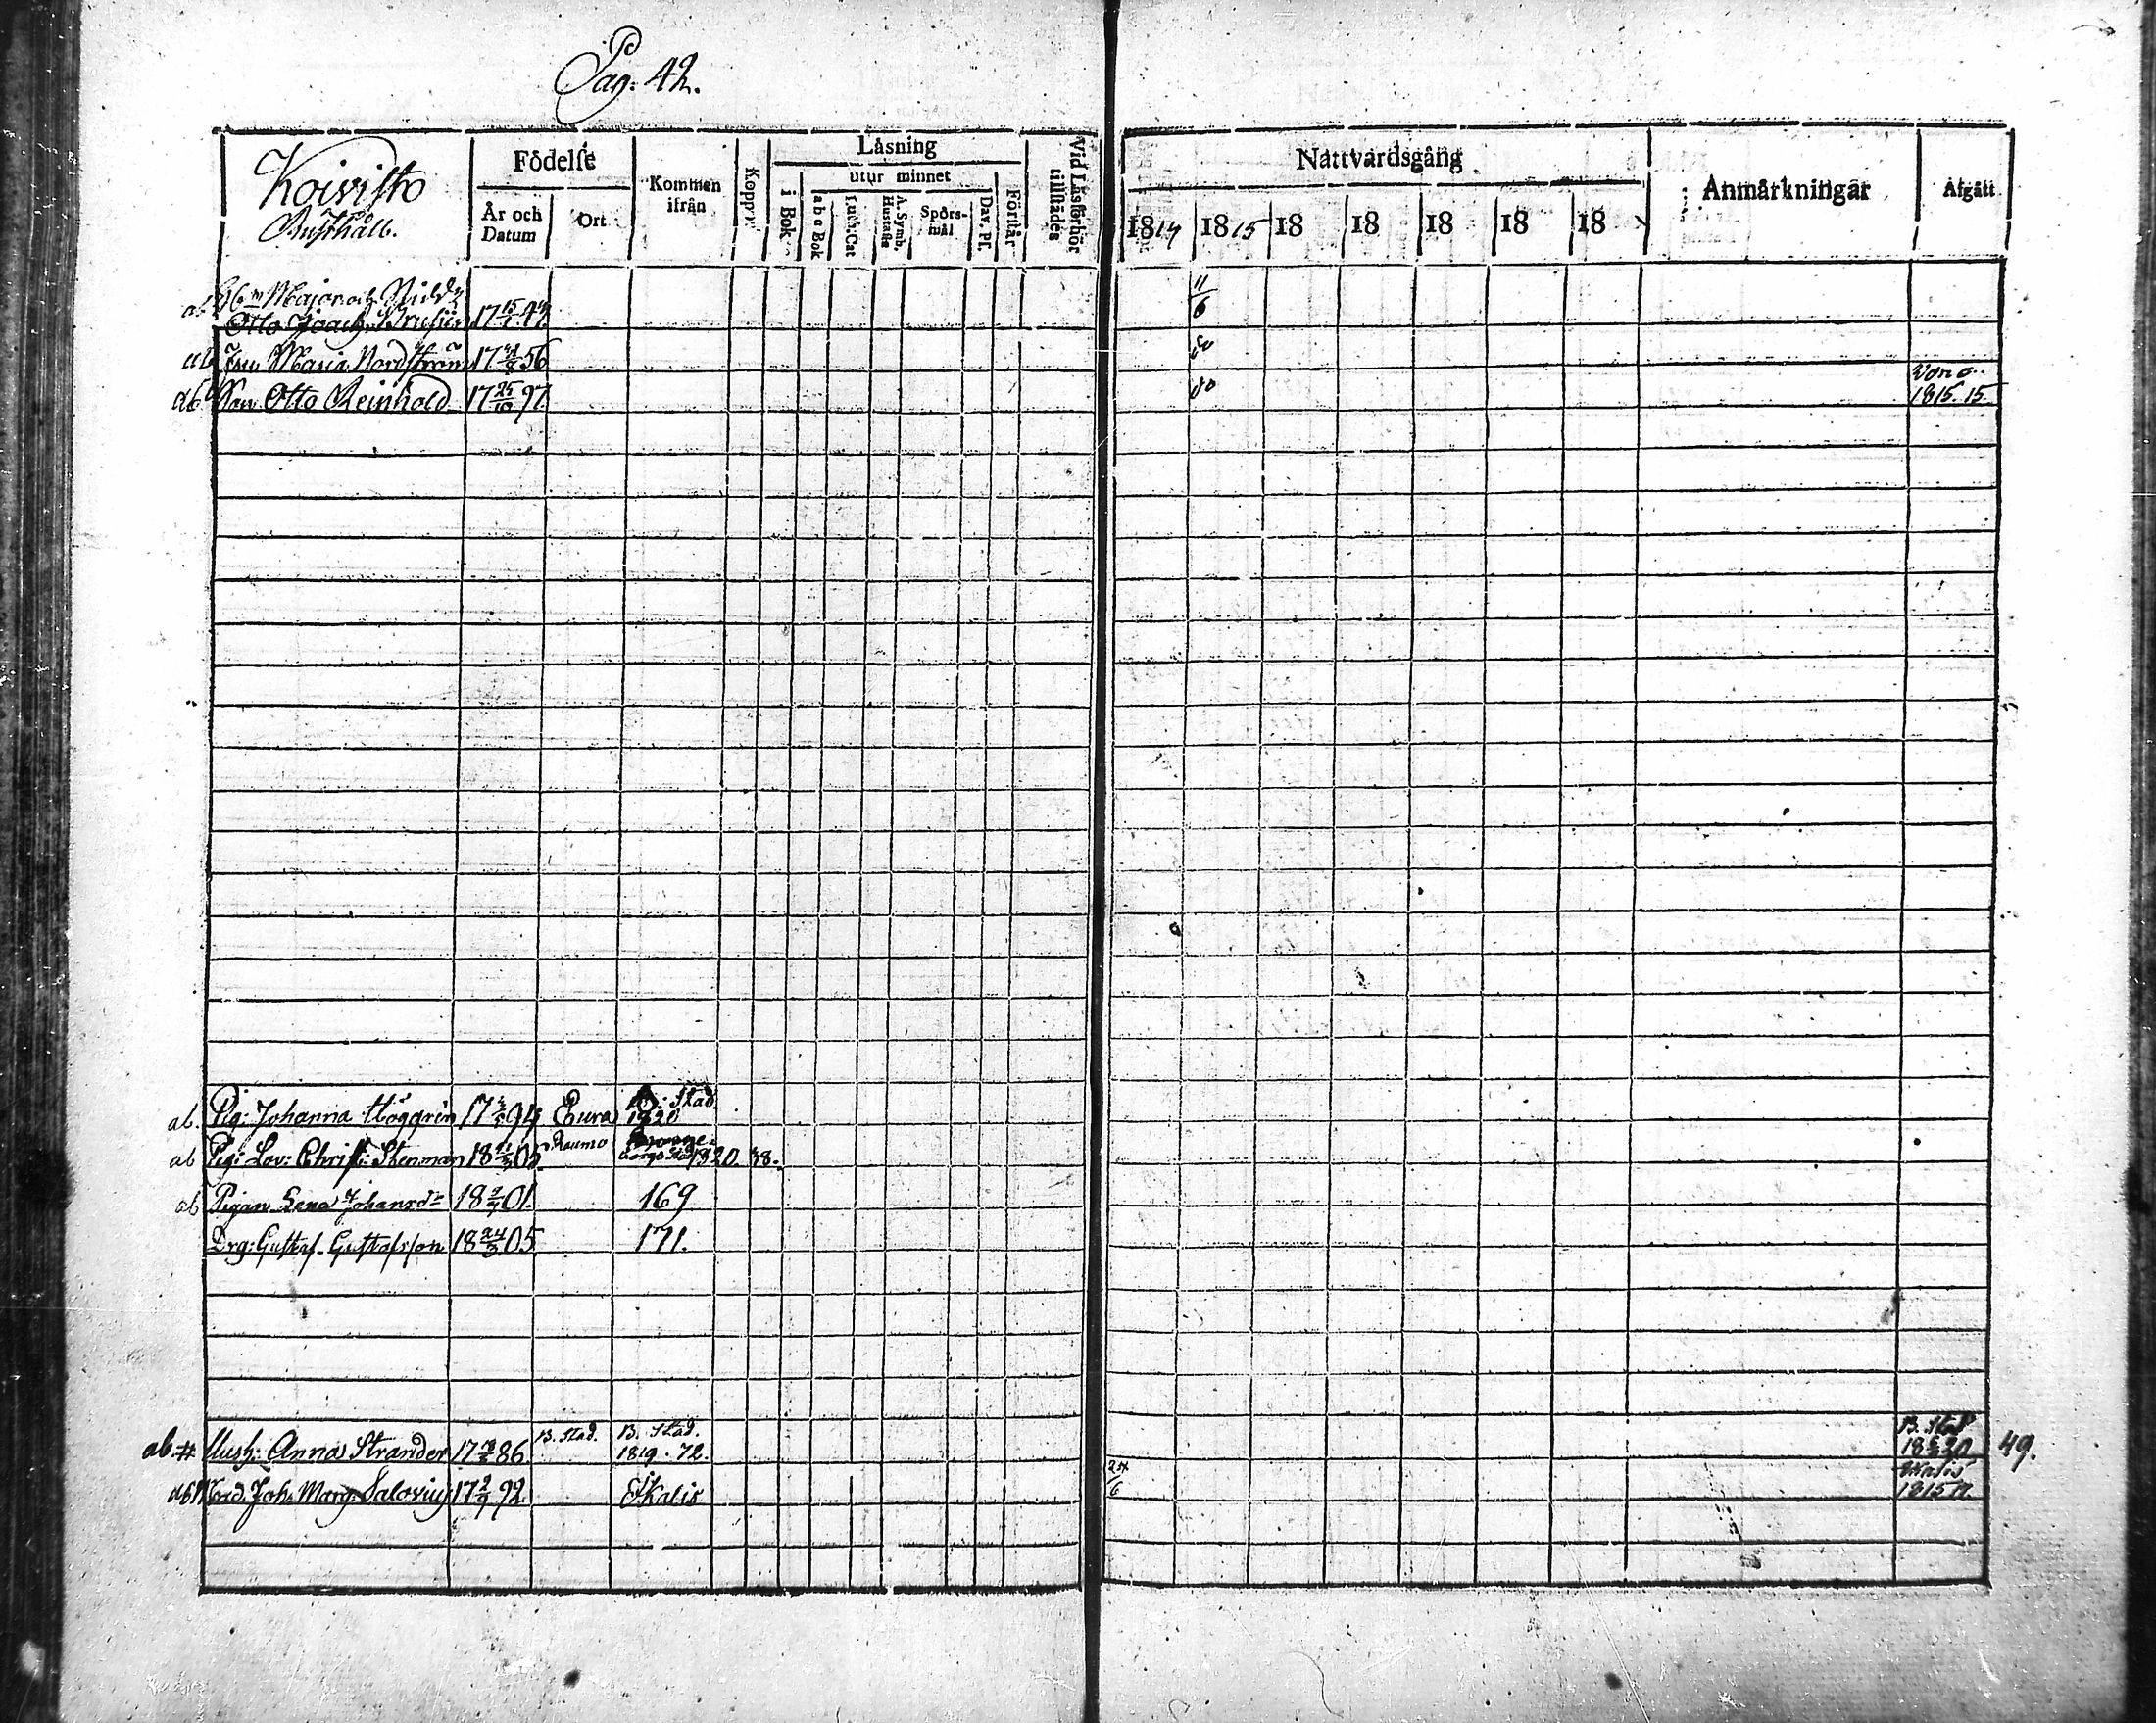 Pag: 42.
Koivisto
Rusthåll.
Födelse
År och Datum
Ort
Kommen ifrån
Koppr.
Läsning
utur minnet
i Bok
a b c Bok
Luth: Cat
A. Symb. Hustafla
Spörsmål
Dav. Ps.
Förstår
Vid Läsförhör tillstädes
Nattvardsgång
1814 1815 18 18 18 18 18
Anmärkningar
Afgått
Major och Ridd
Otto Joach: 17 15/1 47. 11/6
ab Fru Maria Nordström 17 56
ab Son Otto Reinhold 17 25/10 97. 1815. 15.
ab. Pig: Johanna Höggrén 17 94 Eura B: Stad 1820
ab Pig: Lov: Christ: Stenman 18 05 Raumo 1820. 38.
ab Pigan Lena Johansdr 18 01. 169
Drg: Gustaf Gustafsson 18 24/3 05 171.
ab # Hush: Anna Strander 17 86. B. Stad. B. Stad. 1819. 72. B. Stad 1820 49.
ab Joh. Marg. Salovius 17 2/9 92. Ekalis 24/6 Ekalis 1815